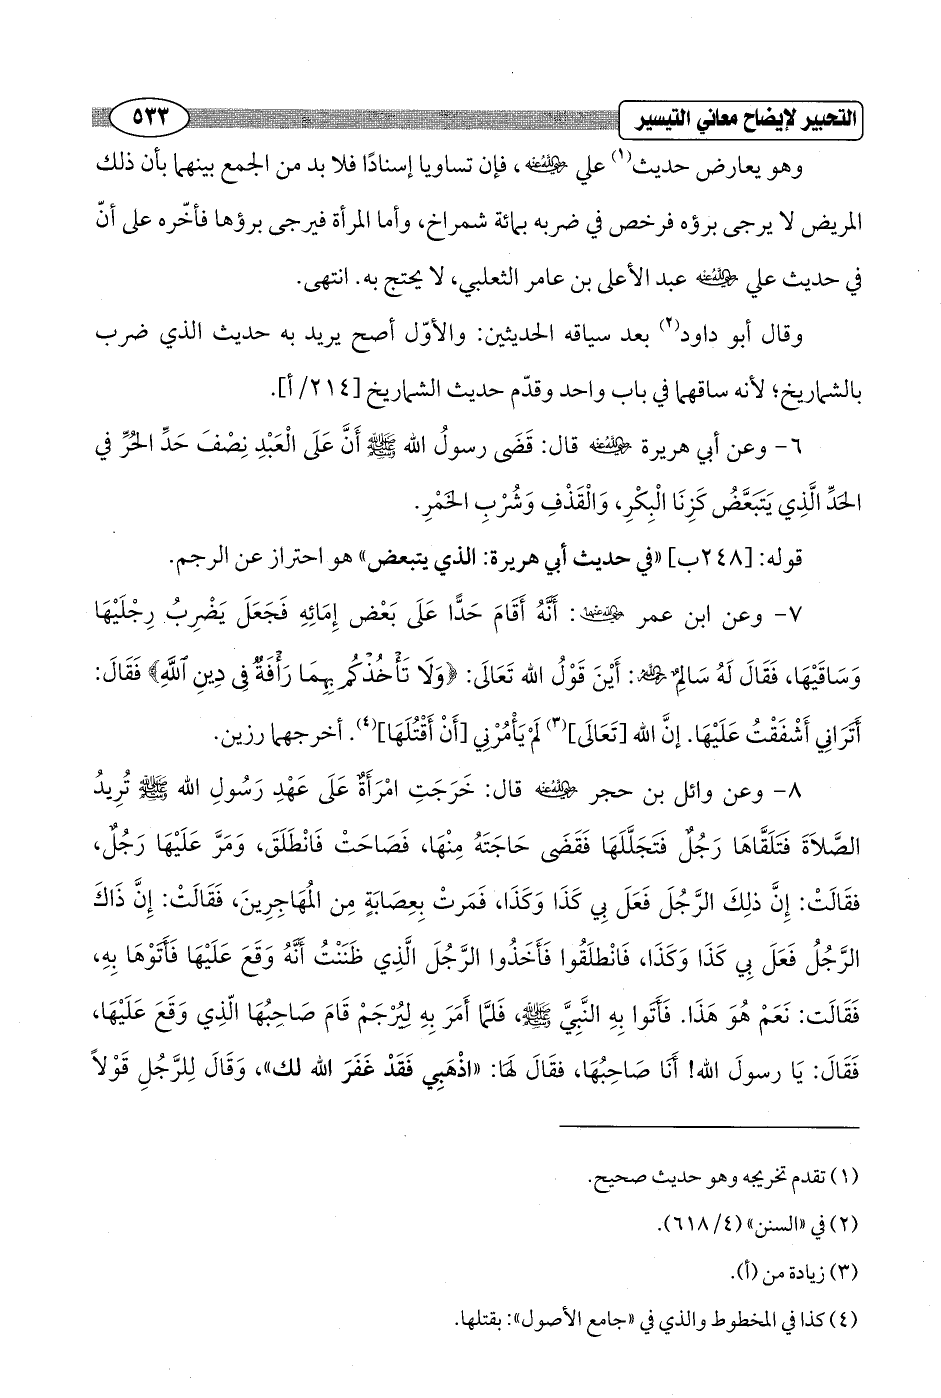 التحبير لإيضاح معاني التيسير ٥٣٣
وهو يعارض حديث(١) علي رضي الله عنه، فإن تساويا إسنادًا فلا بد من الجمع بينهما بأن ذلك
المريض لا يرجى برؤه فرخص في ضربه بمائة شمراخ، وأما المرأة فيرجى برؤها فأخّره على أنّ
في حديث علي رضي الله عنه عبد الأعلى بن عامر الثعلبي، لا يحتج به. انتهى.
وقال أبو داود(٢) بعد سياقه الحديثين: والأوّل أصح يريد به حديث الذي ضرب
بالشماريخ؛ لأنه ساقهما في باب واحد وقدّم حديث الشماريخ [٢١٤/ أ].
٦- وعن أبي هريرة رضي الله عنه قال: قَضَى رسولُ الله ﷺ أَنَّ عَلَى الْعَبْدِ نِصْفَ حَدِّ الحُرِّ في
الحَدِّ الَّذِي يَتَبَعَّضُ كَزِنَا الْبِكْرِ، وَالْقَذْفِ وَشُرْبِ الخَمْرِ.
قوله: [٢٤٨ب] «في حديث أبي هريرة: الذي يتبعض» هو احتراز عن الرجم.
٧- وعن ابن عمر رضي الله عنهما: أَنَّهُ أَقَامَ حَدًّا عَلَى بَعْضِ إِمَائِهِ فَجَعَلَ يَضْرِبُ رِجْلَيْهَا
وَسَاقَيْهَا، فَقَالَ لَهُ سَالِمٌ رحمه الله: أَيْنَ قَوْلُ الله تَعَالَى: ﴿وَلَا تَأْخُذْكُم بِهِمَا رَأْفَةٌ فِي دِينِ ٱللَّهِ﴾ فَقَالَ:
أَتَرَانِي أَشْفَقْتُ عَلَيْهَا. إِنَّ الله [تَعَالَى](٣) لَمْ يَأْمُرْنِي [أَنْ أَقْتُلَهَا](٤). أخرجهما رزين.
٨- وعن وائل بن حجر رضي الله عنه قال: خَرَجَتِ امْرَأَةٌ عَلَى عَهْدِ رَسُولِ الله ﷺ تُرِيدُ
الصَّلاَةَ فَتَلَقَّاهَا رَجُلٌ فَتَجَلَّلَهَا فَقَضَى حَاجَتَهُ مِنْهَا، فَصَاحَتْ فَانْطَلَقَ، وَمَرَّ عَلَيْهَا رَجُلٌ،
فقَالَتْ: إِنَّ ذلِكَ الرَّجُلَ فَعَلَ بِي كَذَا وَكَذَا، فَمَرتْ بِعِصَابَةٍ مِن المُهَاجِرِينَ، فَقَالَتْ: إِنَّ ذَاكَ
الرَّجُلُ فَعَلَ بِي كَذَا وَكَذَا، فَانْطلَقُوا فَأَخَذُوا الرَّجُلَ الَّذِي ظَنَنْتُ أَنَّهُ وَقَعَ عَلَيْهَا فَأَتَوْهَا بِهِ،
فَقَالَت: نَعَمْ هُوَ هَذَا. فَأَتَوا بِهِ النَّبِيَّ ﷺ، فَلَمَّا أَمَرَ بِهِ لِيُرْجَمْ قَامَ صَاحِبُهَا الّذِي وَقَعَ عَلَيْهَا،
فَقَالَ: يَا رسولَ الله! أَنَا صَاحِبُهَا، فَقَالَ لَهَا: «اذْهَبِي فَقَدْ غَفَرَ الله لك»، وَقَالَ لِلرَّجُلِ قَوْلاً
(١) تقدم تخريجه وهو حديث صحيح.
(٢) في «السنن» (٤/ ٦١٨).
(٣) زيادة من (أ).
(٤) كذا في المخطوط والذي في «جامع الأصول»: بقتلها.